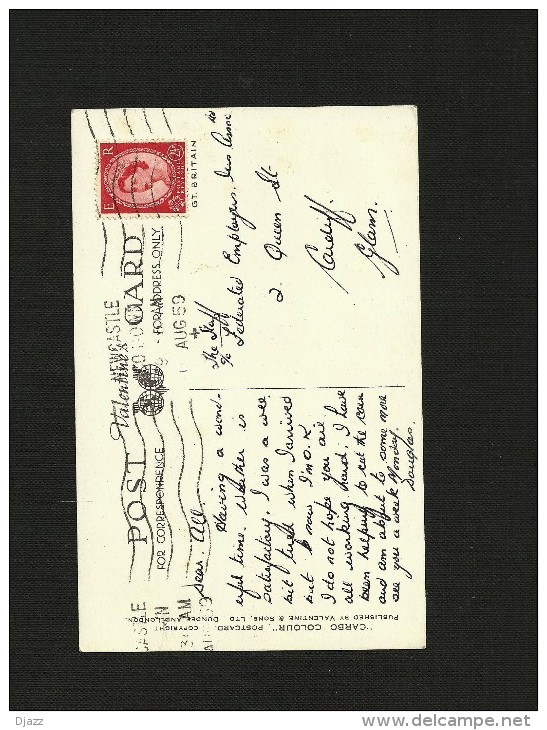 POST CARD
Valentine's
FOR CORRESPONDENCE
FOR ADDRESS ONLY
NEWCASTLE
AUG 59
E R
GT. BRITAIN
Dear All.
Having a wond-
erful time. Weather is
satisfactory. I was a wee
bit tired when I arrived
but now I'm O.K.
I do not hope you are
all working hard; I have
been helping to cut the corn
and am about to some more
see you a week Monday.
Douglas.
The Staff
c/o Federated Employers. Ins Assoc
2 Queen St
Cardiff.
Glam.
"CARBO COLOUR" POSTCARD. COPYRIGHT
PUBLISHED BY VALENTINE & SONS, LTD DUNDEE AND LONDON.
Djazz
www.delcampe.net